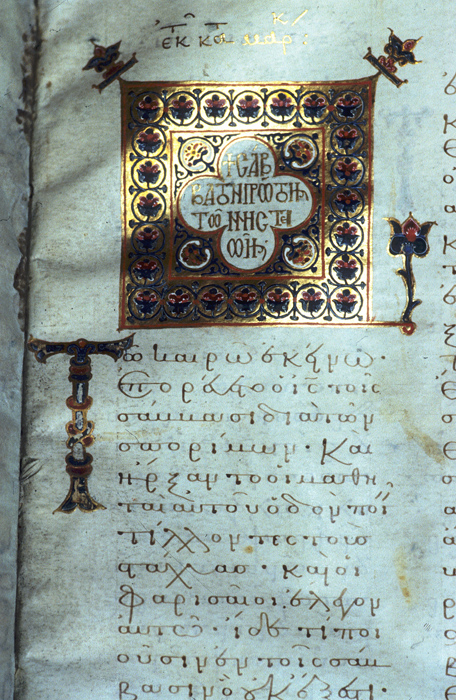 ἐκ τ κτ μαρ:
ΣΑΒ
ΒΑΤΩ ΠΡΩΤΗ
ΤΩΝ ΝΗΣΤΕΙ
ΩΝ
Τῶ καιρῶ ἐκείνω·
ὁ ις τοῖς
σάββασι διὰ τῶν
σπορίμων· Καὶ
ἤρξαντο οἱ μαθη
ταὶ αὐτοῦ ὁδὸν ποι
τίλλοντες τοὺς
στάχυας· καὶ οἱ
Φαρισαῖοι ἔλεγον
αὐτῶ· ἴδε τί ποι
οῦσιν ἐν τοῖς σάβ
βασιν ὃ οὐκ ἔξεστι·